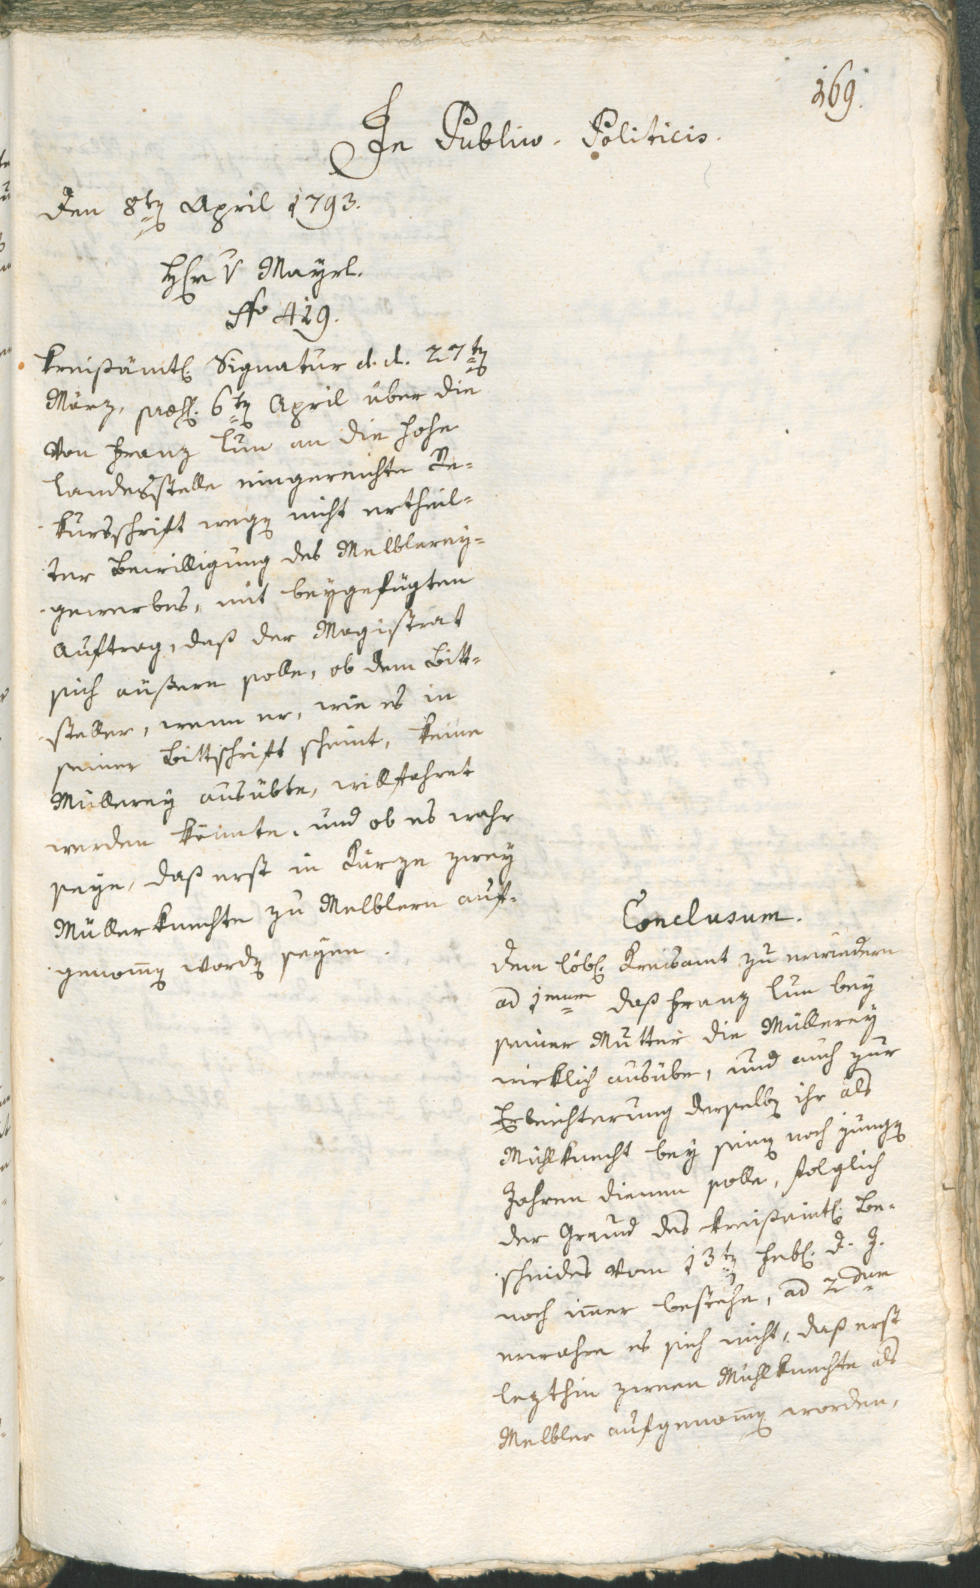 169.
In Publico-Politicis.
Den 8ten April 1793.
H: v Mayrl.
No 419.
Kreisämtl. Signatur d. d. 27ten
März, præs. 6ten April über die
von Franz Lun an die hohe
Landesstelle eingereichte Re-
kursschrift wegen nicht ertheil-
ter Bewilligung des Melblerey-
gewerbes, mit beygefügten
Auftrag, daß der Magistrat
sich äußern solle, ob dem Bitt-
steller, wenn er, wie es in
seiner Bittschrift scheint, keine
Müllerey ausübte, willfahret
werden könnte. und ob es wahr
seye, daß erst in Kürze zwey
Müllerknechte zu Melblern auf-
genommen worden seyen.
Conclusum.
Dem löbl. Kreisamt zu erwiedern
ad 1mum daß Franz Lun bey
seiner Mutter die Müllerey
wirklich ausübe, und auch zur
Erleichterung derselben ihr als
Mühlknecht bey seinen noch jungen
Jahren dienen solle, folglich
der Grund des kreisämtl. Be-
scheides vom 13ten Febr. d. J.
noch immer bestehe, ad 2dum
erwahre es sich nicht, daß erst
lezthin zween Mühlknechte als
Melbler aufgenommen worden,